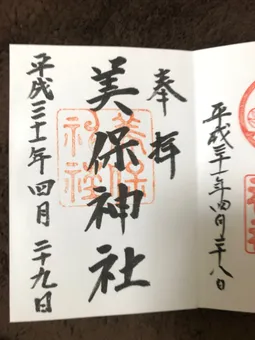 奉拝
美保神社
美保
神社
平成三十一年四月二十九日
平成三十一年四月二十八日